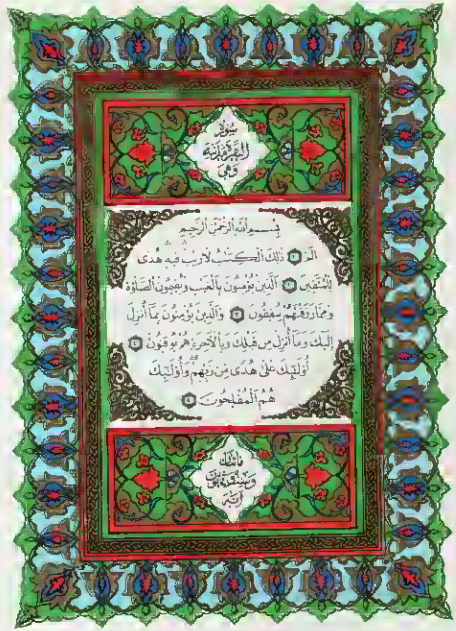 سُورَةُ
البَقَرَةِ مَدَنِيَّة
وَهِيَ
بِسْمِ اللَّهِ الرَّحْمَٰنِ الرَّحِيمِ
الٓمٓ ۝ ذَٰلِكَ الْكِتَٰبُ لَا رَيْبَ فِيهِ هُدًى
لِّلْمُتَّقِينَ ۝ الَّذِينَ يُؤْمِنُونَ بِالْغَيْبِ وَيُقِيمُونَ الصَّلَوٰةَ
وَمِمَّا رَزَقْنَٰهُمْ يُنفِقُونَ ۝ وَالَّذِينَ يُؤْمِنُونَ بِمَا أُنزِلَ
إِلَيْكَ وَمَا أُنزِلَ مِن قَبْلِكَ وَبِالْآخِرَةِ هُمْ يُوقِنُونَ ۝
أُولَٰئِكَ عَلَىٰ هُدًى مِّن رَّبِّهِمْ وَأُولَٰئِكَ
هُمُ الْمُفْلِحُونَ ۝
مائتان
وست وثمانون
آية